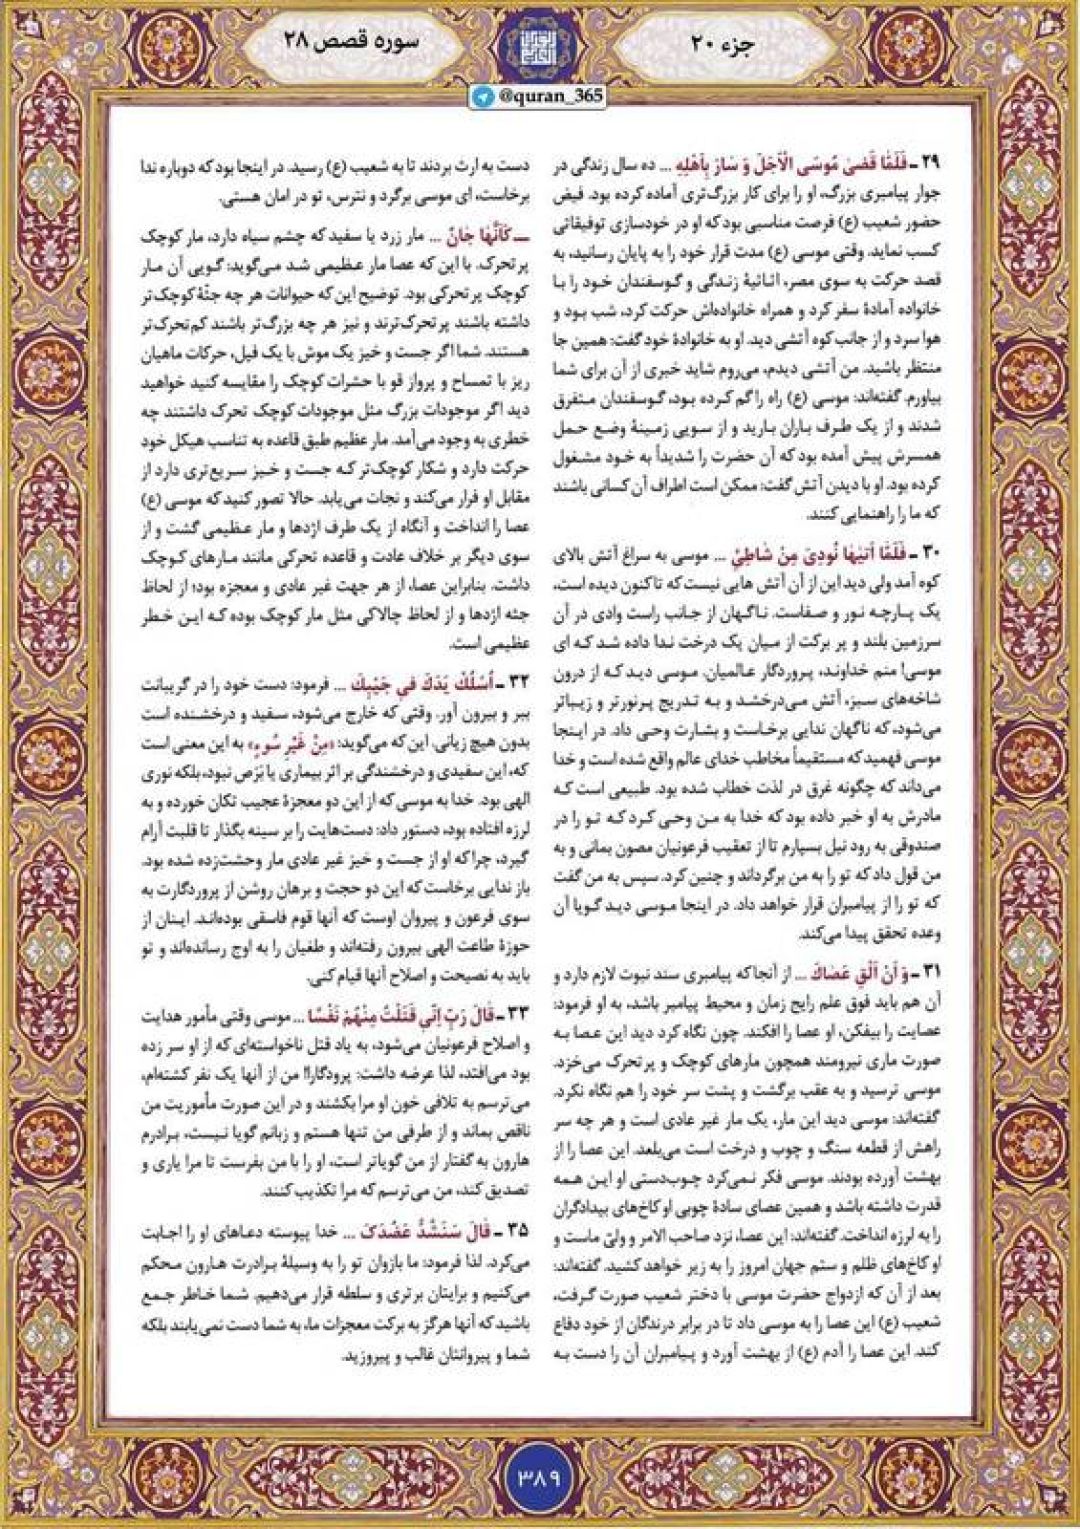 جزء ۲۰
سوره قصص ۲۸
@quran_365
۲۹ ـ فَلَمّٰا قَضىٰ مُوسَى الْاَجَلَ وَ سٰارَ بِاَهْلِهِ ... ده سال زندگی در
جوار پیامبری بزرگ، او را برای کار بزرگ‌تری آماده کرده بود. فیض
حضور شعیب (ع) فرصت مناسبی بود که او در خودسازی توفیقاتی
کسب نماید. وقتی موسی (ع) مدت قرار خود را به پایان رسانید، به
قصد حرکت به سوی مصر، اثاثیهٔ زندگی و گوسفندان خود را با
خانواده آمادهٔ سفر کرد و همراه خانواده‌اش حرکت کرد، شب بود و
هوا سرد و از جانب کوه آتشی دید. او به خانوادهٔ خود گفت: همین جا
منتظر باشید. من آتشی دیدم، می‌روم شاید خبری از آن برای شما
بیاورم. گفته‌اند: موسی (ع) راه را گم کرده بود، گوسفندان متفرق
شدند و از یک طرف باران بارید و از سویی زمینهٔ وضع حمل
همسرش پیش آمده بود که آن حضرت را شدیداً به خود مشغول
کرده بود. او با دیدن آتش گفت: ممکن است اطراف آن کسانی باشند
که ما را راهنمایی کنند.
۳۰ ـ فَلَمّٰا اَتیٰهٰا نُودِیَ مِنْ شٰاطِئِ ... موسی به سراغ آتش بالای
کوه آمد ولی دید این از آن آتش هایی نیست که تاکنون دیده است،
یک پارچه نور و صفاست. ناگهان از جانب راست وادی در آن
سرزمین بلند و پر برکت از میان یک درخت ندا داده شد که ای
موسی! منم خداوند، پروردگار عالمیان. موسی دید که از درون
شاخه‌های سبز، آتش می‌درخشد و به تدریج پرنورتر و زیباتر
می‌شود، که ناگهان ندایی برخاست و بشارت وحی داد. در اینجا
موسی فهمید که مستقیماً مخاطب خدای عالم واقع شده است و خدا
می‌داند که چگونه غرق در لذت خطاب شده بود. طبیعی است که
مادرش به او خبر داده بود که خدا به من وحی کرد که تو را در
صندوقی به رود نیل بسپارم تا از تعقیب فرعونیان مصون بمانی و به
من قول داد که تو را به من برگرداند و چنین کرد. سپس به من گفت
که تو را از پیامبران قرار خواهد داد. در اینجا موسی دید گویا آن
وعده تحقق پیدا می‌کند.
۳۱ ـ وَ اَنْ اَلْقِ عَصٰاكَ ... از آنجا که پیامبری سند نبوت لازم دارد و
آن هم باید فوق علم رایج زمان و محیط پیامبر باشد، به او فرمود:
عصایت را بیفکن، او عصا را افکند. چون نگاه کرد دید این عصا به
صورت ماری نیرومند همچون مارهای کوچک و پرتحرک می‌خزد.
موسی ترسید و به عقب برگشت و پشت سر خود را هم نگاه نکرد.
گفته‌اند: موسی دید این مار، یک مار غیر عادی است و هر چه سر
راهش از قطعه سنگ و چوب و درخت است می‌بلعد. این عصا را از
بهشت آورده بودند. موسی فکر نمی‌کرد چوب‌دستی او این همه
قدرت داشته باشد و همین عصای سادهٔ چوبی او کاخ‌های بیدادگران
را به لرزه انداخت. گفته‌اند: این عصا، نزد صاحب الامر و ولیّ ماست و
او کاخ‌های ظلم و ستم جهان امروز را به زیر خواهد کشید. گفته‌اند:
بعد از آن که ازدواج حضرت موسی با دختر شعیب صورت گرفت،
شعیب (ع) این عصا را به موسی داد تا در برابر درندگان از خود دفاع
کند. این عصا را آدم (ع) از بهشت آورد و پیامبران آن را دست به
دست به ارث بردند تا به شعیب (ع) رسید. در اینجا بود که دوباره ندا
برخاست، ای موسی برگرد و نترس، تو در امان هستی.
ـ كَاَنَّهٰا جٰانٌّ ... مار زرد یا سفید که چشم سیاه دارد، مار کوچک
پرتحرک. با این که عصا مار عظیمی شد می‌گوید: گویی آن مار
کوچک پرتحرکی بود. توضیح این که حیوانات هر چه جثّهٔ کوچک‌تر
داشته باشند پرتحرک‌ترند و نیز هر چه بزرگ‌تر باشند کم‌تحرک‌تر
هستند. شما اگر جست و خیز یک موش با یک فیل، حرکات ماهیان
ریز با تمساح و پرواز قو با حشرات کوچک را مقایسه کنید خواهید
دید اگر موجودات بزرگ مثل موجودات کوچک تحرک داشتند چه
خطری به وجود می‌آمد. مار عظیم طبق قاعده به تناسب هیکل خود
حرکت دارد و شکار کوچک‌تر که جست و خیز سریع‌تری دارد از
مقابل او فرار می‌کند و نجات می‌یابد. حالا تصور کنید که موسی (ع)
عصا را انداخت و آنگاه از یک طرف اژدها و مار عظیمی گشت و از
سوی دیگر بر خلاف عادت و قاعده تحرکی مانند مارهای کوچک
داشت. بنابراین عصا، از هر جهت غیر عادی و معجزه بود؛ از لحاظ
جثه اژدها و از لحاظ چالاکی مثل مار کوچک بوده که این خطر
عظیمی است.
۳۲ ـ اُسْلُكْ یَدَكَ فی جَیْبِكَ ... فرمود: دست خود را در گریبانت
ببر و بیرون آور. وقتی که خارج می‌شود، سفید و درخشنده است
بدون هیچ زیانی. این که می‌گوید: «مِنْ غَیْرِ سُوءٍ» به این معنی است
که، این سفیدی و درخشندگی بر اثر بیماری یا بَرَص نبود، بلکه نوری
الهی بود. خدا به موسی که از این دو معجزهٔ عجیب تکان خورده و به
لرزه افتاده بود، دستور داد: دست‌هایت را بر سینه بگذار تا قلبت آرام
گیرد، چرا که او از جست و خیز غیر عادی مار وحشت‌زده شده بود.
باز ندایی برخاست که این دو حجت و برهان روشن از پروردگارت به
سوی فرعون و پیروان اوست که آنها قوم فاسقی بوده‌اند. اینان از
حوزهٔ طاعت الهی بیرون رفته‌اند و طغیان را به اوج رسانده‌اند و تو
باید به نصیحت و اصلاح آنها قیام کنی.
۳۳ ـ قٰالَ رَبِّ اِنّی قَتَلْتُ مِنْهُمْ نَفْسًا ... موسی وقتی مأمور هدایت
و اصلاح فرعونیان می‌شود، به یاد قتل ناخواسته‌ای که از او سر زده
بود می‌افتد، لذا عرضه داشت: پرودگارا! من از آنها یک نفر کشته‌ام،
می‌ترسم به تلافی خون او مرا بکشند و در این صورت مأموریت من
ناقص بماند و از طرفی من تنها هستم و زبانم گویا نیست، برادرم
هارون به گفتار از من گویاتر است، او را با من بفرست تا مرا یاری و
تصدیق کند، من می‌ترسم که مرا تکذیب کنند.
۳۵ ـ قٰالَ سَنَشُدُّ عَضُدَکَ ... خدا پیوسته دعاهای او را اجابت
می‌کرد. لذا فرمود: ما بازوان تو را به وسیلهٔ برادرت هارون محکم
می‌کنیم و برایتان برتری و سلطه قرار می‌دهیم. شما خاطر جمع
باشید که آنها هرگز به برکت معجزات ما، به شما دست نمی‌یابند بلکه
شما و پیروانتان غالب و پیروزید.
۳۸۹